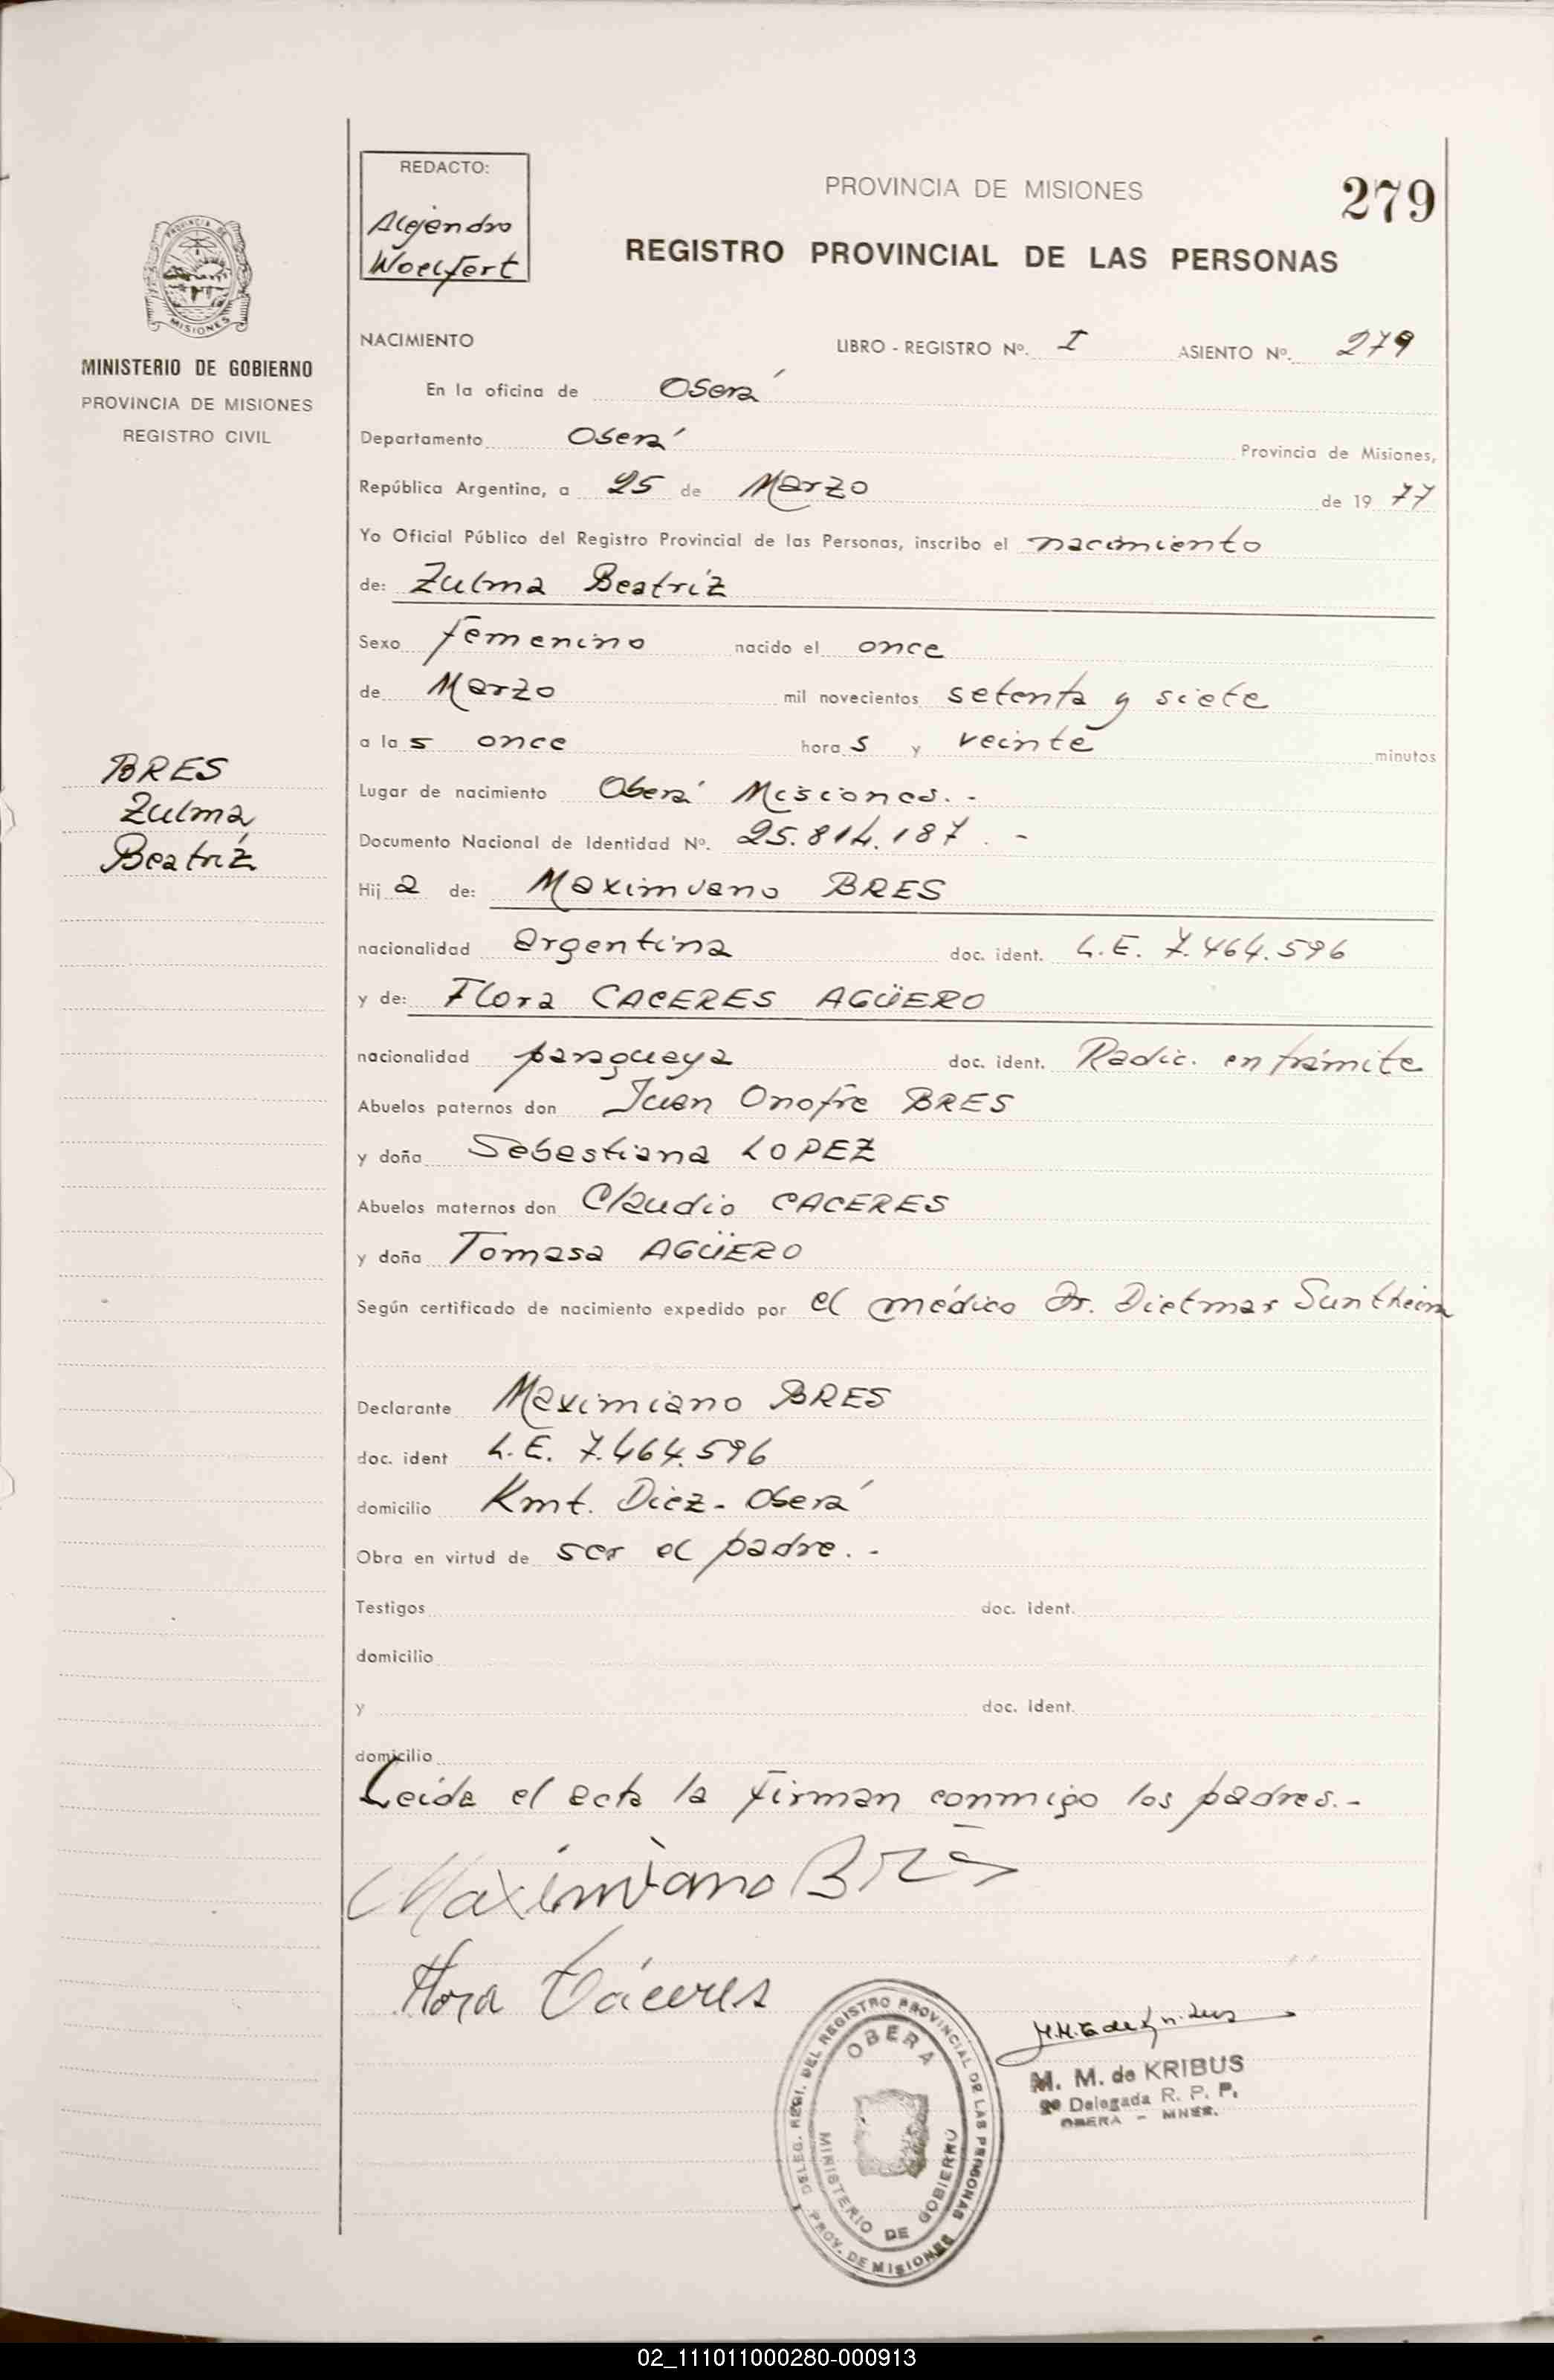 REDACTO:
Alejandro
Woelfert
PROVINCIA DE MISIONES
279
REGISTRO PROVINCIAL DE LAS PERSONAS
PROVINCIA DE
MISIONES
MINISTERIO DE GOBIERNO
PROVINCIA DE MISIONES
REGISTRO CIVIL
NACIMIENTO LIBRO - REGISTRO Nº. I ASIENTO Nº. 279
En la oficina de Oberá
Departamento Oberá Provincia de Misiones,
República Argentina, a 25 de Marzo de 19 77
Yo Oficial Público del Registro Provincial de las Personas, inscribo el nacimiento
de: Zulma Beatriz
Sexo femenino nacido el once
de Marzo mil novecientos setenta y siete
a las once horas y veinte minutos
BRES
Zulma
Beatriz
Lugar de nacimiento Oberá Misiones.-
Documento Nacional de Identidad Nº. 25.814.187.-
Hija de: Maximiano BRES
nacionalidad argentina doc. ident. L.E. 7.464.596
y de: Flora CACERES AGÜERO
nacionalidad paraguaya doc. ident. Radic. en trámite
Abuelos paternos don Juan Onofre BRES
y doña Sebastiana LOPEZ
Abuelos maternos don Claudio CACERES
y doña Tomasa AGÜERO
Según certificado de nacimiento expedido por el médico Dr. Dietmar Suntheim
Declarante Maximiano BRES
doc. ident L.E. 7.464.596
domicilio Kmt. Diez - Oberá
Obra en virtud de ser el padre.-
Testigos doc. ident.
domicilio
y doc. ident.
domicilio
Leída el acta la firman conmigo los padres.-
Maximiano Bres
Flora Cáceres
DELEG. REGI. DEL REGISTRO PROVINCIAL DE LAS PERSONAS
OBERA
MINISTERIO DE GOBIERNO
PROV. DE MISIONES
M. M. de KRIBUS
2º Delegada R. P. P.
OBERA - MNES.
02_111011000280-000913